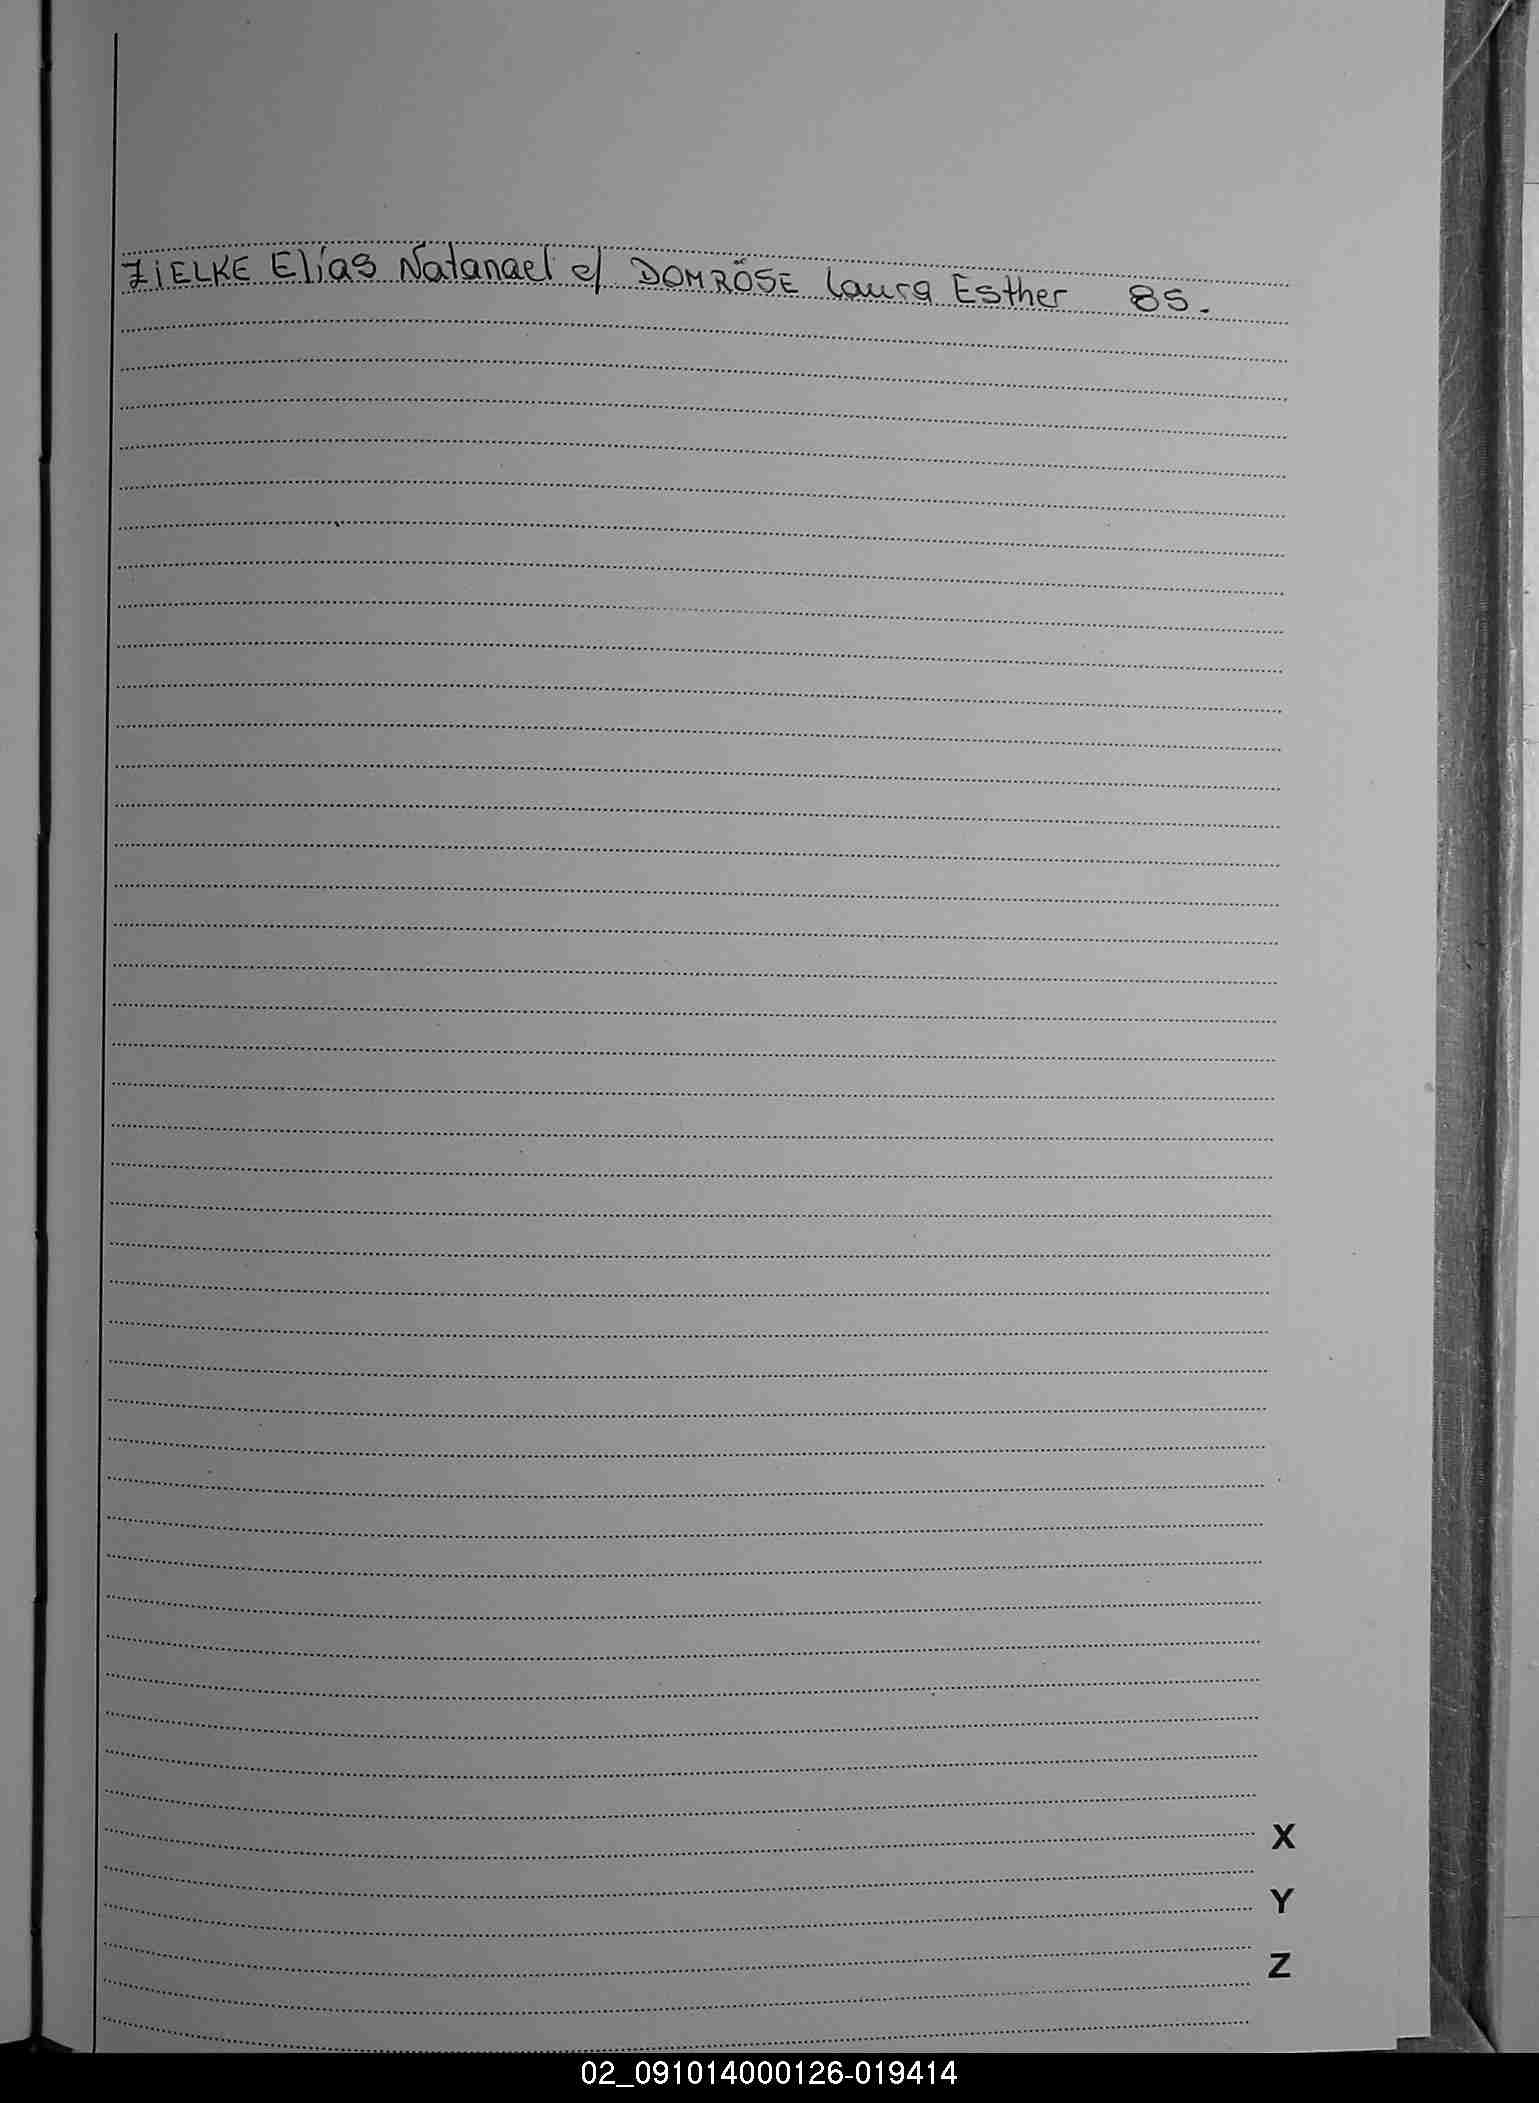 ZiELKE Elías Natanael c/ DOMRÖSE Laura Esther 85.
X
Y
Z
02_091014000126-019414